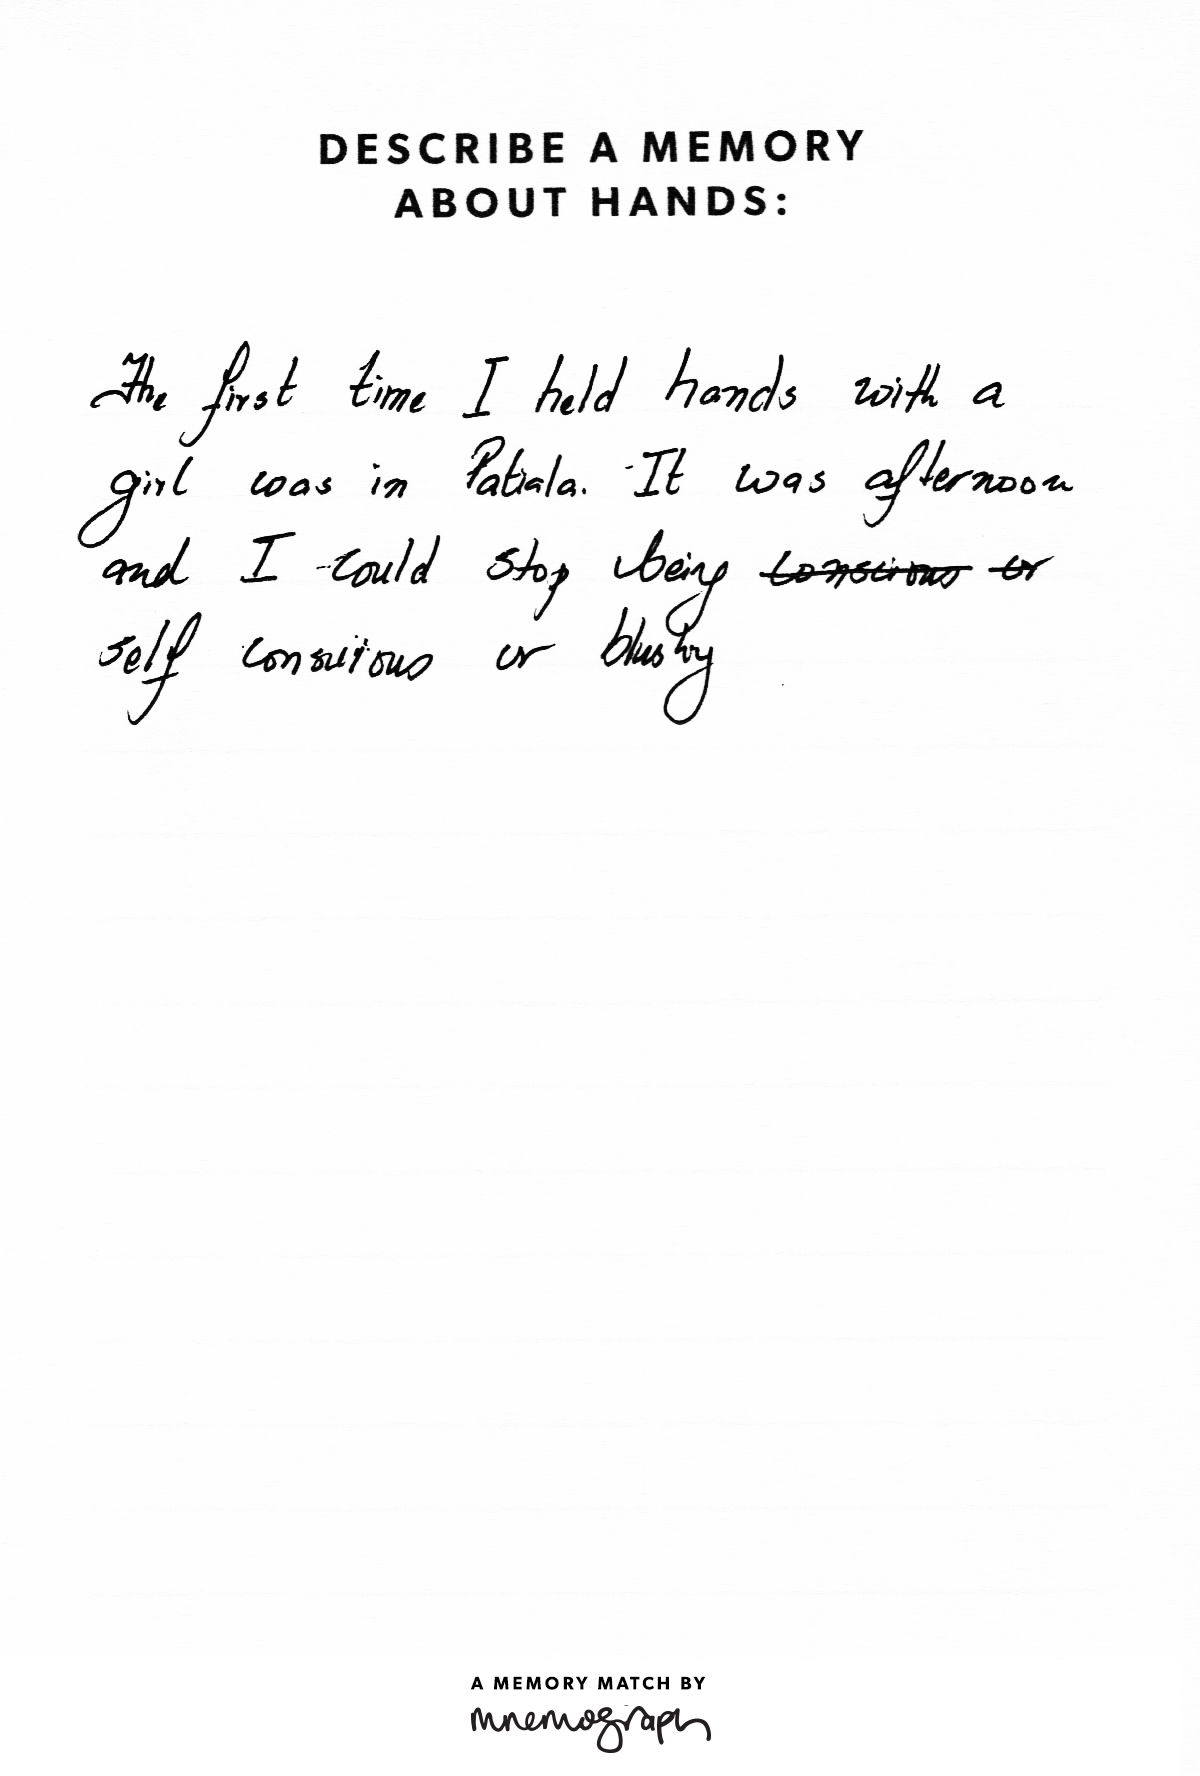 DESCRIBE A MEMORY
ABOUT HANDS:
The first time I held hands with a
girl was in Patiala. It was afternoon
and I could stop being ~~conscious or~~
self conscious or blushy
A MEMORY MATCH BY
mnemograph